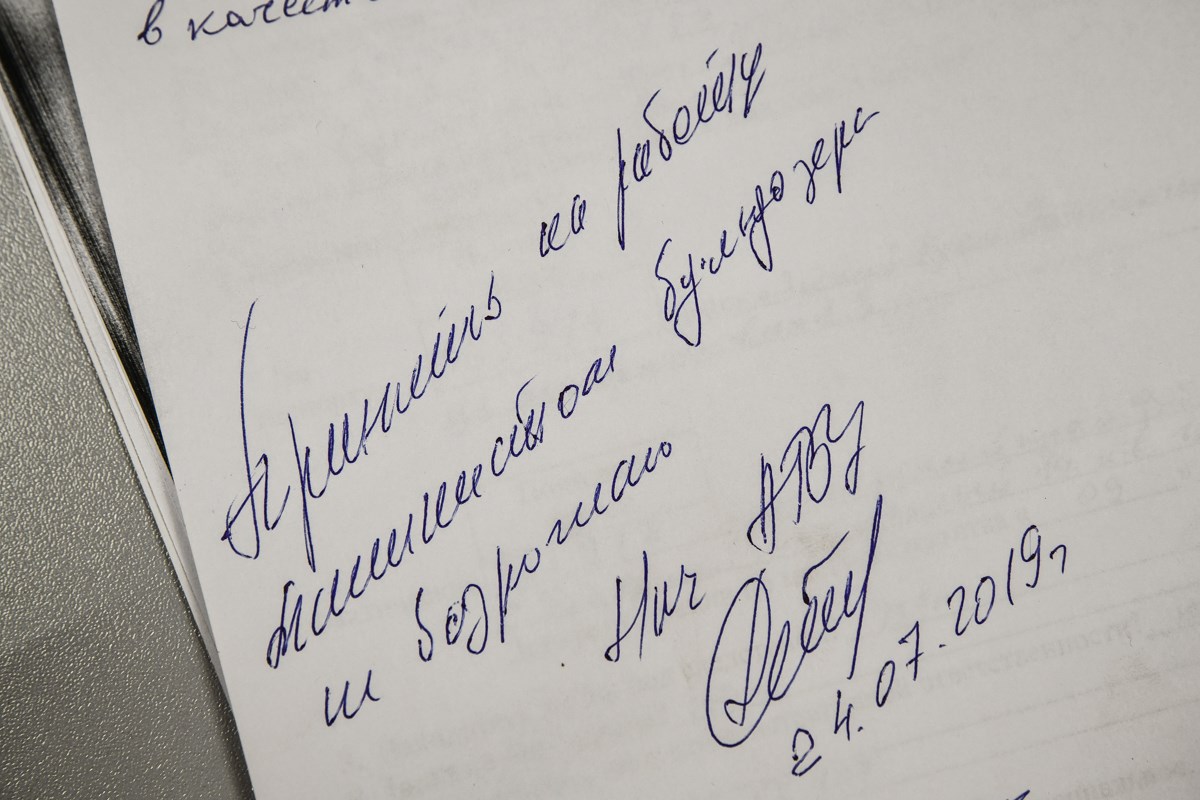 в качест
Принять на работу
машинистом бульдозера
возрожаю
Нач АТВУ
24.07.2019г